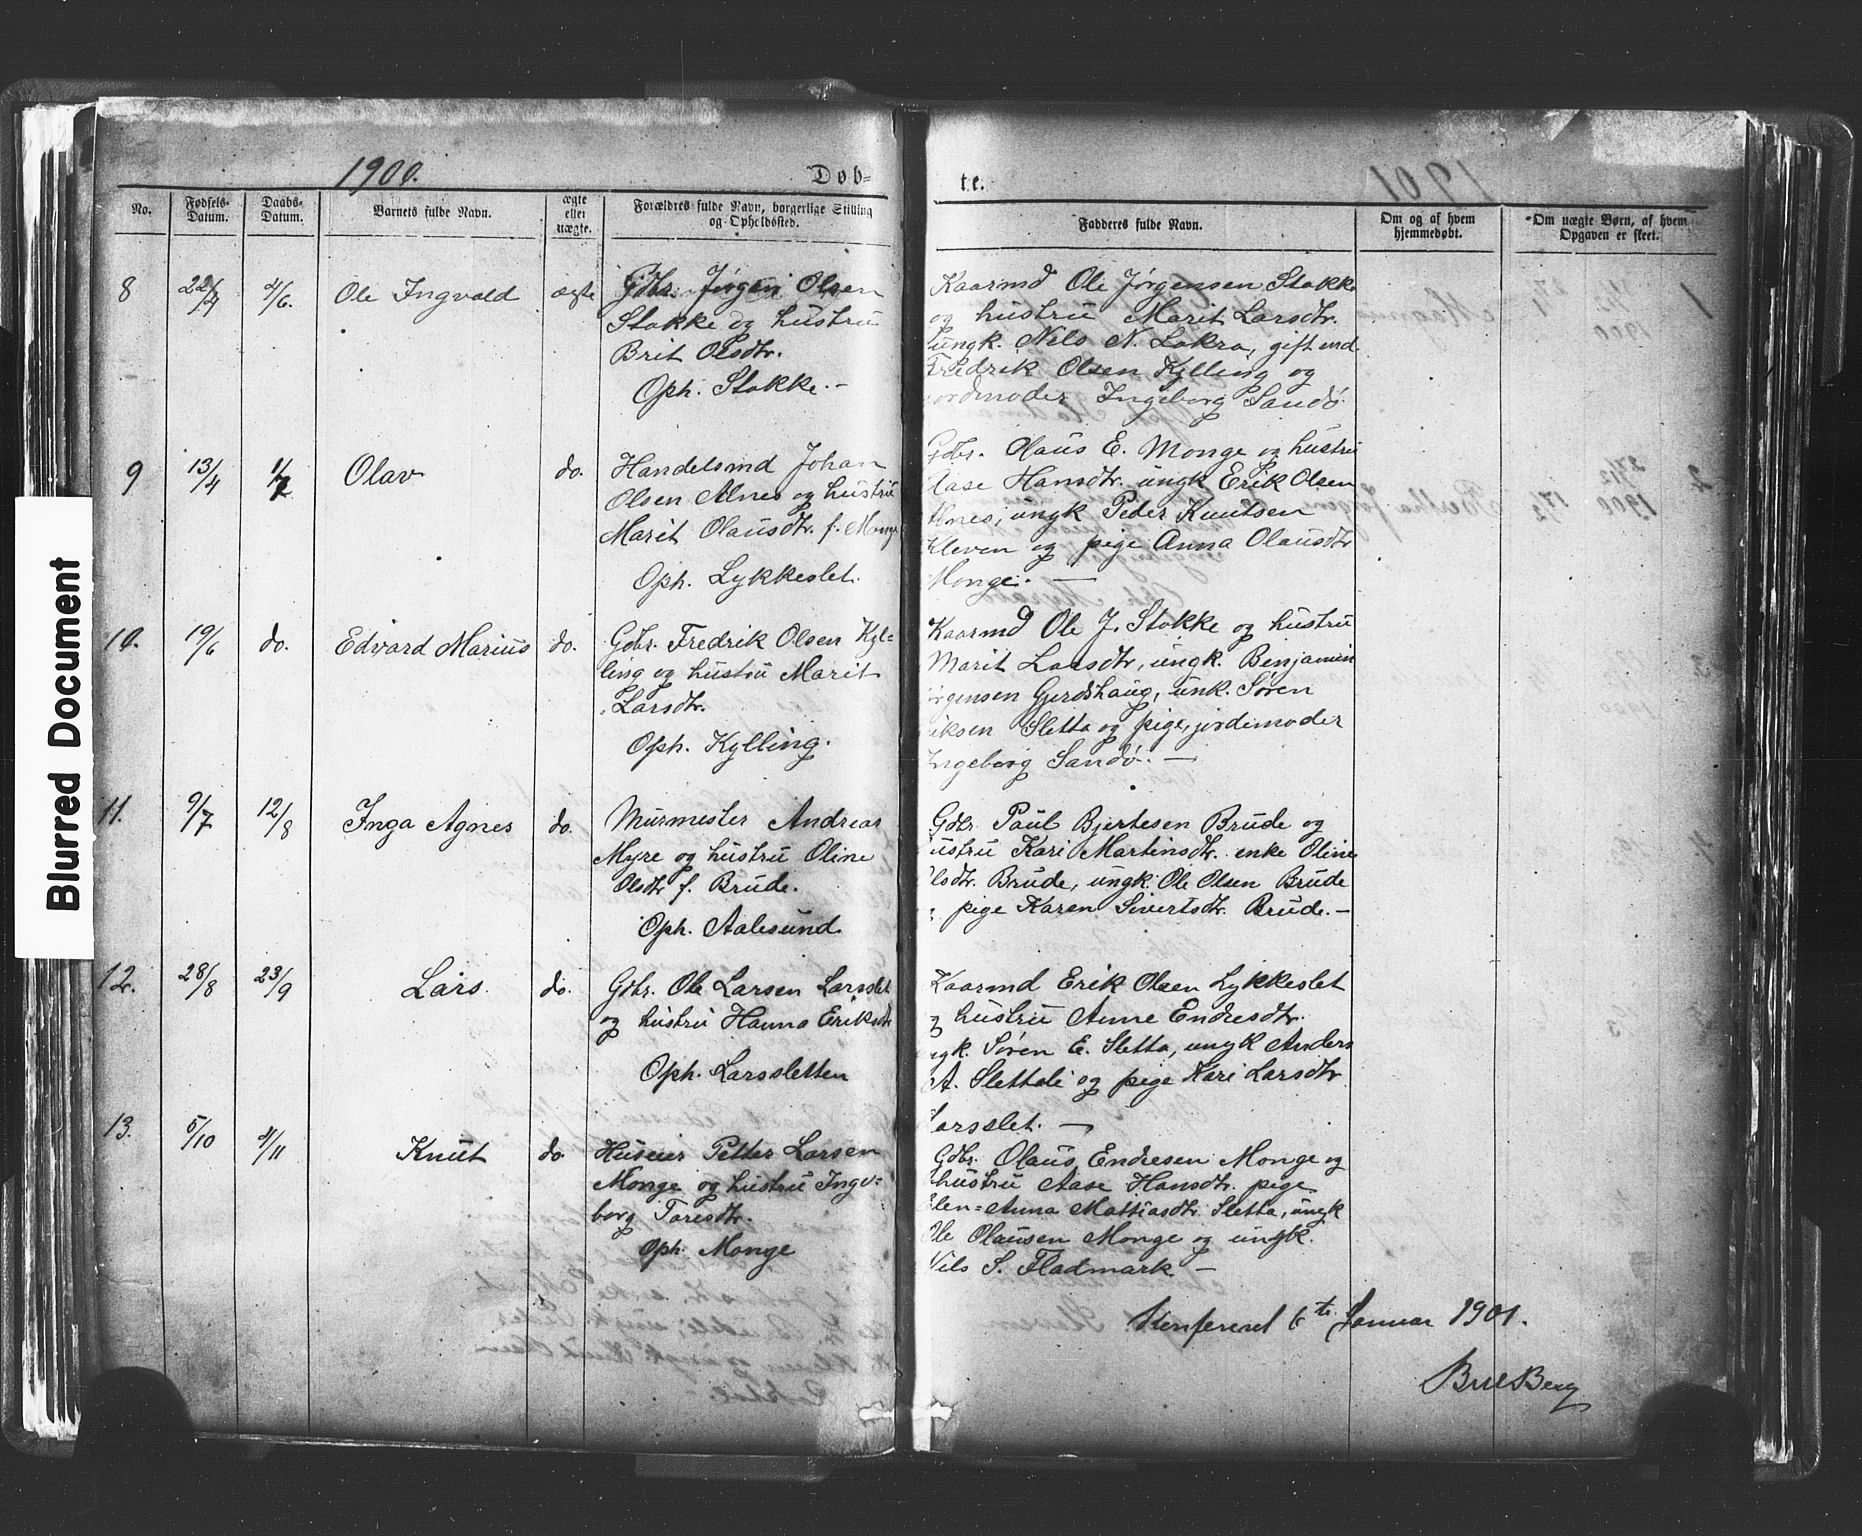 Blurred Document
1900.
Døb=
te.
No.
Fødsels-Datum.
Daabs-Datum.
Barnets fulde Navn.
ægte eller uægte.
Forældres fulde Navn, borgerlige Stilling og Opholdssted.
Fadderes fulde Navn.
Om og af hvem hjemmedøbt.
Om uægte Børn, af hvem Opgaven er skeet.
8 22/4 4/6. Ole Ingvald ægte
Gdbr. Jørgen Olsen
Stokke og hustru
Brit Olsdtr.
Oph. Stokke.-
Kaarmd Ole Jørgensen Stokke
og hustru Marit Larsdtr.
ungk. Nils N. Lakra, gift md
Fredrik Olsen Kylling og
jordmoder Ingeborg Sandö
9 13/4 1/7 Olav do.
Handelsmd Johan
Olsen Alnes og hustru
Marit Olausdtr. f. Monge
Oph. Lykkeslet.
Gdbr. Olaus E. Monge og hustru
Aase Hansdtr. ungk Erik Olsen
Alnes, ungk Peder Knutsen
Kleven og pige Anna Olausdtr
Monge. —
10. 19/6 do. Edvard Marius do.
Gdbr. Fredrik Olsen Kyl=
ling og hustru Marit
Larsdtr.
Oph. Kylling.
Kaarmd Ole J. Stokke og hustru
Marit Larsdtr, ungk. Benjamin
Jørgensen Gjerdshaug, unk. Søren
Eriksen Sletta og pige, jordemoder
Ingeborg Sandö. —
11. 9/7 12/8 Inga Agnes do.
Murmester Andreas
Myre og hustru Oline
Olsdtr f. Brude.
Oph. Aalesund.
Gdbr. Paul Bjertesen Brude og
hustru Kari Martinsdtr. enke Oline
Olsdtr. Brude, ungk. Ole Olsen Brude
og pige Karen Sivertsdtr. Brude. —
12. 28/8 23/9 Lars. do.
Gdbr. Ole Larsen Larsslet
og hustru Hanna Eriksdtr
Oph. Larssletten
Kaarmd Erik Olsen Lykkeslet
og hustru Anne Endresdtr.
ungk. Søren E. Sletta, ungk Anders
A. Slettali og pige Kari Larsdtr
Larsslet. —
13. 5/10 4/11 Knut do.
Huseier Petter Larsen
Monge og hustru Inge=
borg Taresdtr.
Oph. Monge
Gdbr. Olaus Endresen Monge og
hustru Aase Hansdtr. pige
Elen=Anna Mattiasdtr. Sletta, ungk
Ole Olausen Monge og ungk.
Nils S. Fladmark —
Konfereret 6te Januar 1901.